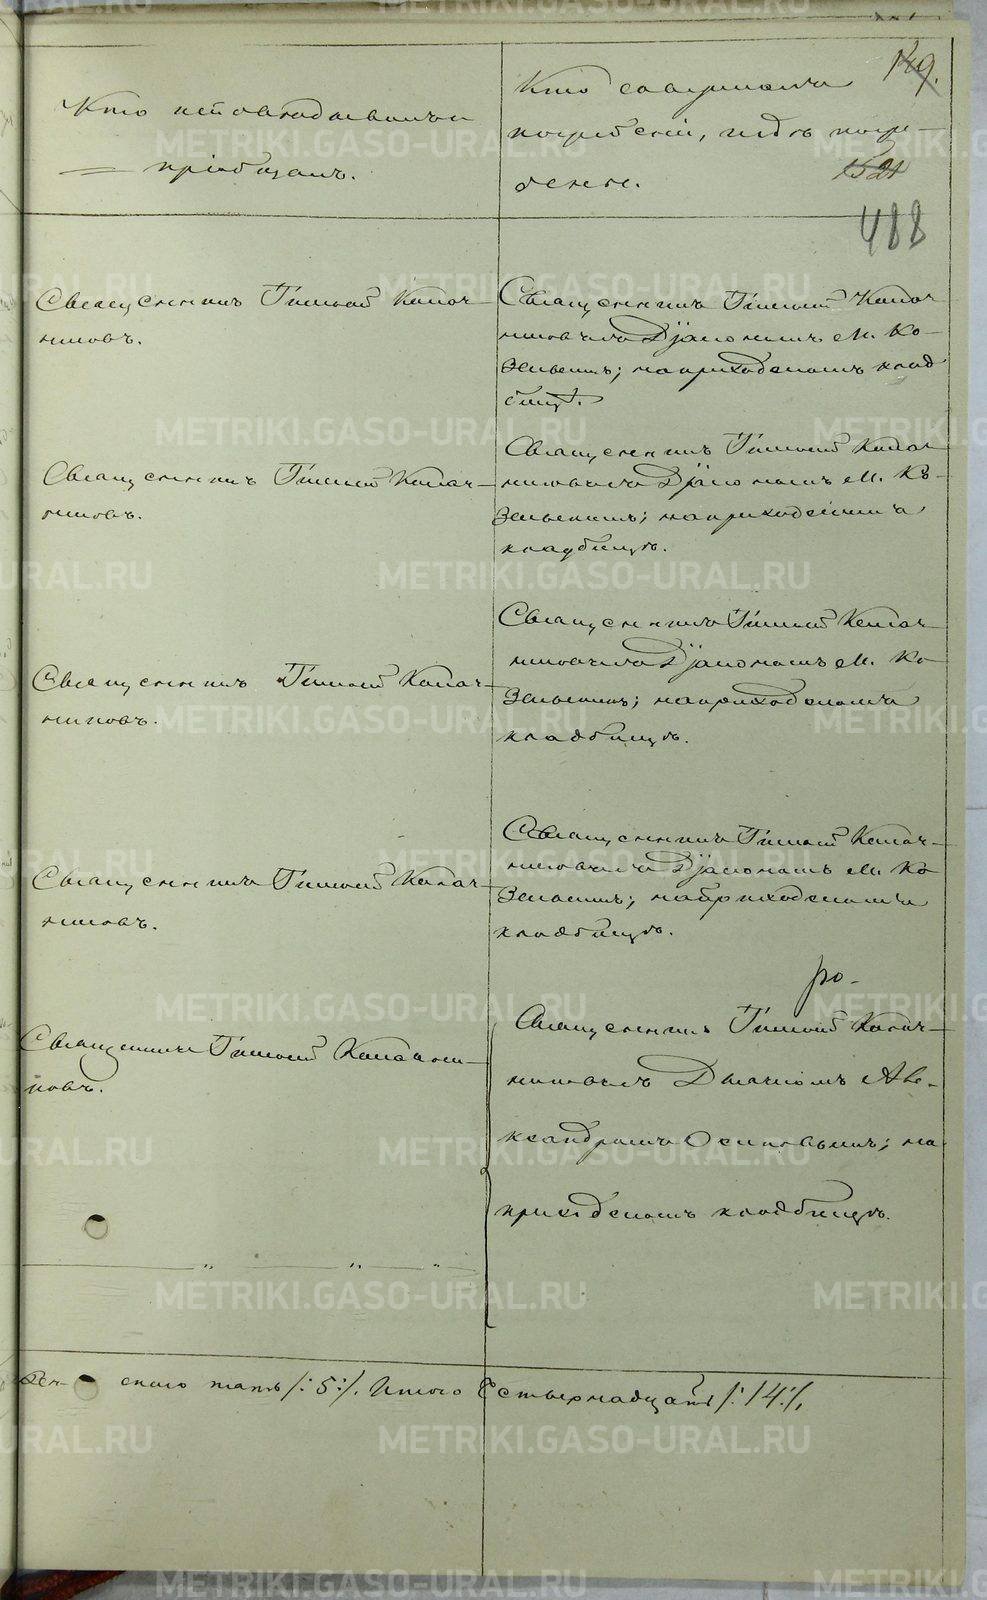 149.
Кто исповѣдывалъ и
пріобщалъ.
Кто совершалъ
погребеніе, и гдѣ погре-
бены.
488
Священникъ Тимоѳей Калач-
никовъ.
Священникъ Тимоѳей Калач-
никовъ съ Діакономъ М. Ко-
; на приходскомъ клад-
бищѣ.
Священникъ Тимоѳей Калач-
никовъ.
Священникъ Тимоѳей Калач-
никовъ съ Діакономъ М. Ко-
; на приходскомъ
кладбищѣ.
Священникъ Тимоѳей Калач-
никовъ.
Священникъ Тимоѳей Калач-
никовъ съ Діакономъ М. Ко-
; на приходскомъ
кладбищѣ.
Священникъ Тимоѳей Калач-
никовъ.
Священникъ Тимоѳей Калач-
никовъ съ Діакономъ М. Ко-
; на приходскомъ
кладбищѣ.
Священникъ Тимоѳей Калачни-
ковъ.
Священникъ Тимоѳей Калач-
никовъ съ Дьячкомъ Але-
ксандромъ Осиповымъ; на
приходскомъ кладбищѣ.
Жен- скаго пять /: 5 :/. Итого Четырнадцать /: 14 :/.
METRIKI.GASO-URAL.RU